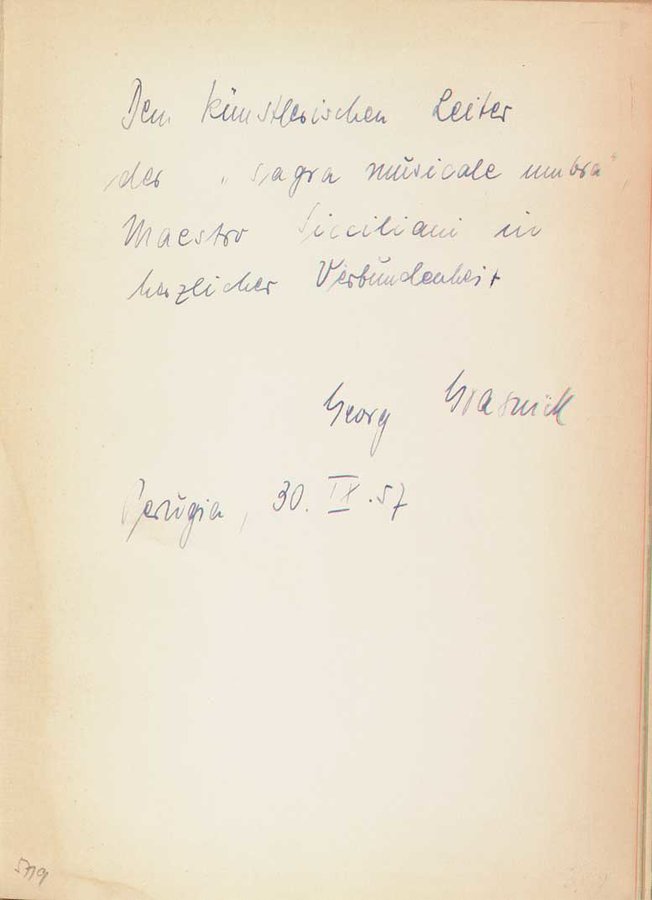 Dem künstlerischen Leiter
der „sagra musicale umbra"
Maestro Sicciliani in
herzlicher Verbundenheit
Georg Grasnick
Perugia, 30. IX. 57
5719